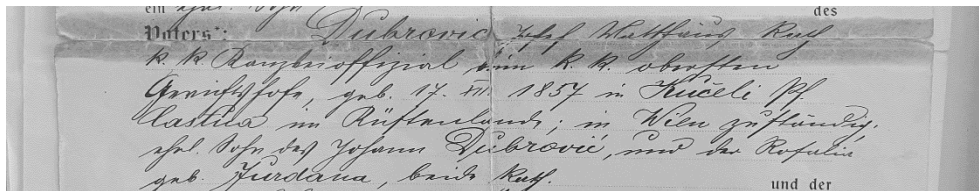 ein ehel. Sohn des
Vaters: Dubrovic Josef Matthäus Kath.
k. k. Kanzleioffizial beim k. k. obersten
Gerichtshofe, geb. 17. XII. 1857 in Kučeli Pf.
Castua im Küstenlande; in Wien zuständig,
ehel. Sohn des Johann Dubrović, und der Rosalia
geb. Jurdana, beide Kath.
und der